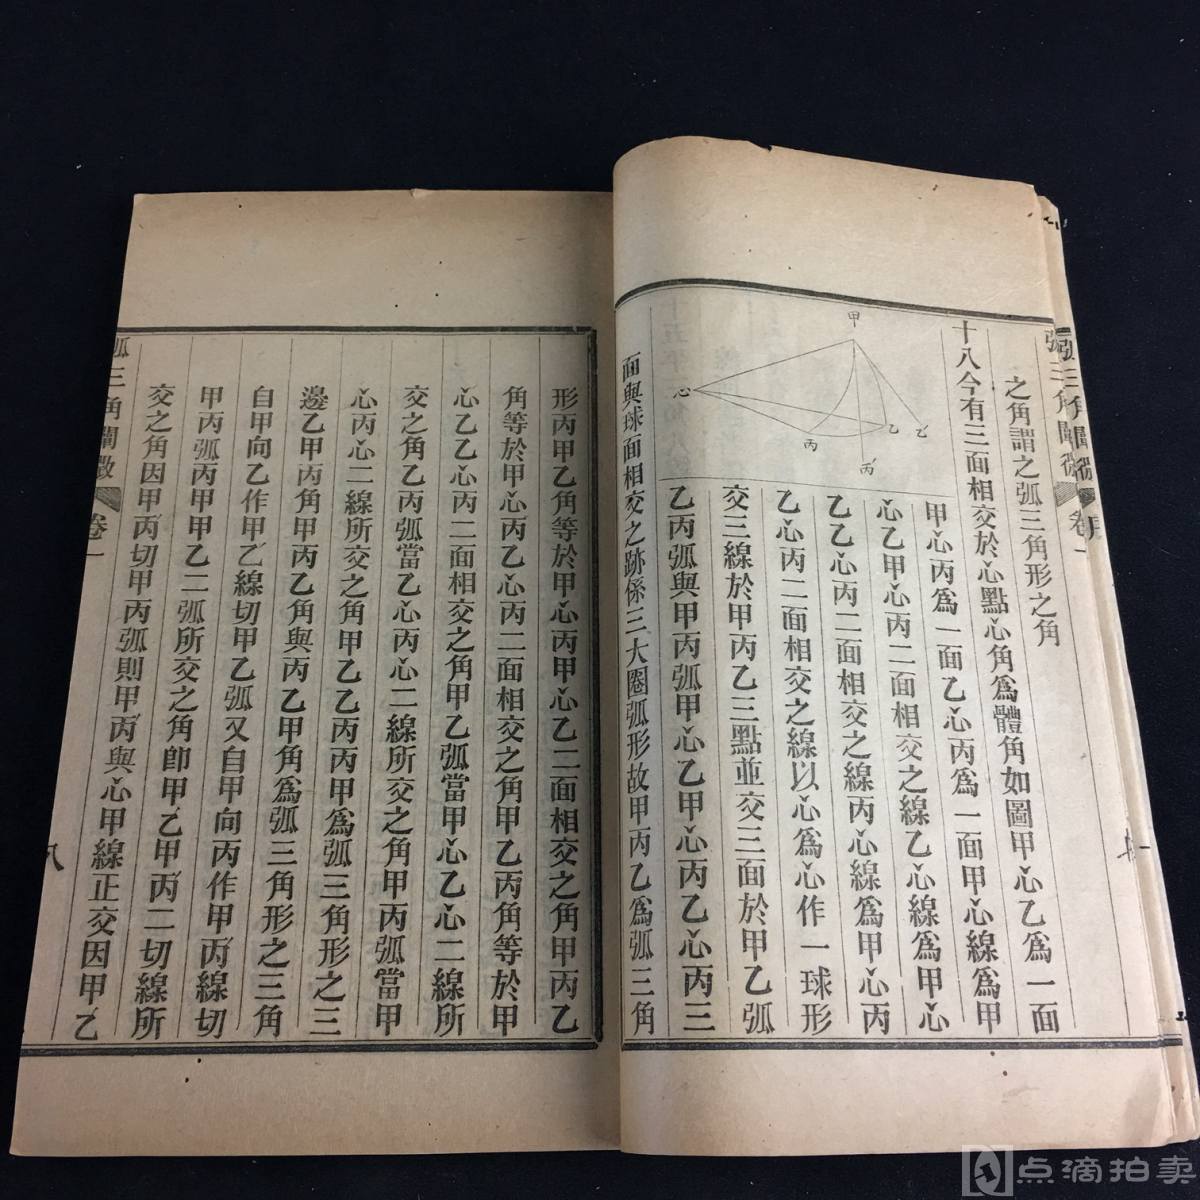 弧三角闡微
卷一
之角謂之弧三角形之角
十八今有三面相交於心點心角爲體角如圖甲心乙爲一面
甲心丙爲一面乙心丙爲一面甲心線爲甲
心乙甲心丙二面相交之線乙心線爲甲心
乙乙心丙二面相交之線丙心線爲甲心丙
乙心丙二面相交之線以心爲心作一球形
交三線於甲丙乙三點並交三面於甲乙弧
乙丙弧與甲丙弧甲心乙甲心丙乙心丙三
面與球面相交之跡係三大圈弧形故甲丙乙爲弧三角
甲
心
丙
乙
乙
丙
形丙甲乙角等於甲心丙甲心乙二面相交之角甲丙乙
角等於甲心丙乙心丙二面相交之角甲乙丙角等於甲
心乙乙心丙二面相交之角甲乙弧當甲心乙心二線所
交之角乙丙弧當乙心丙心二線所交之角甲丙弧當甲
心丙心二線所交之角甲乙乙丙丙甲爲弧三角形之三
邊乙甲丙角甲丙乙角與丙乙甲角爲弧三角形之三角
自甲向乙作甲乙線切甲乙弧又自甲向丙作甲丙線切
甲丙弧丙甲甲乙二弧所交之角卽甲乙甲丙二切線所
交之角因甲丙切甲丙弧則甲丙與心甲線正交因甲乙
弧三角闡微
卷一
八
点滴拍卖